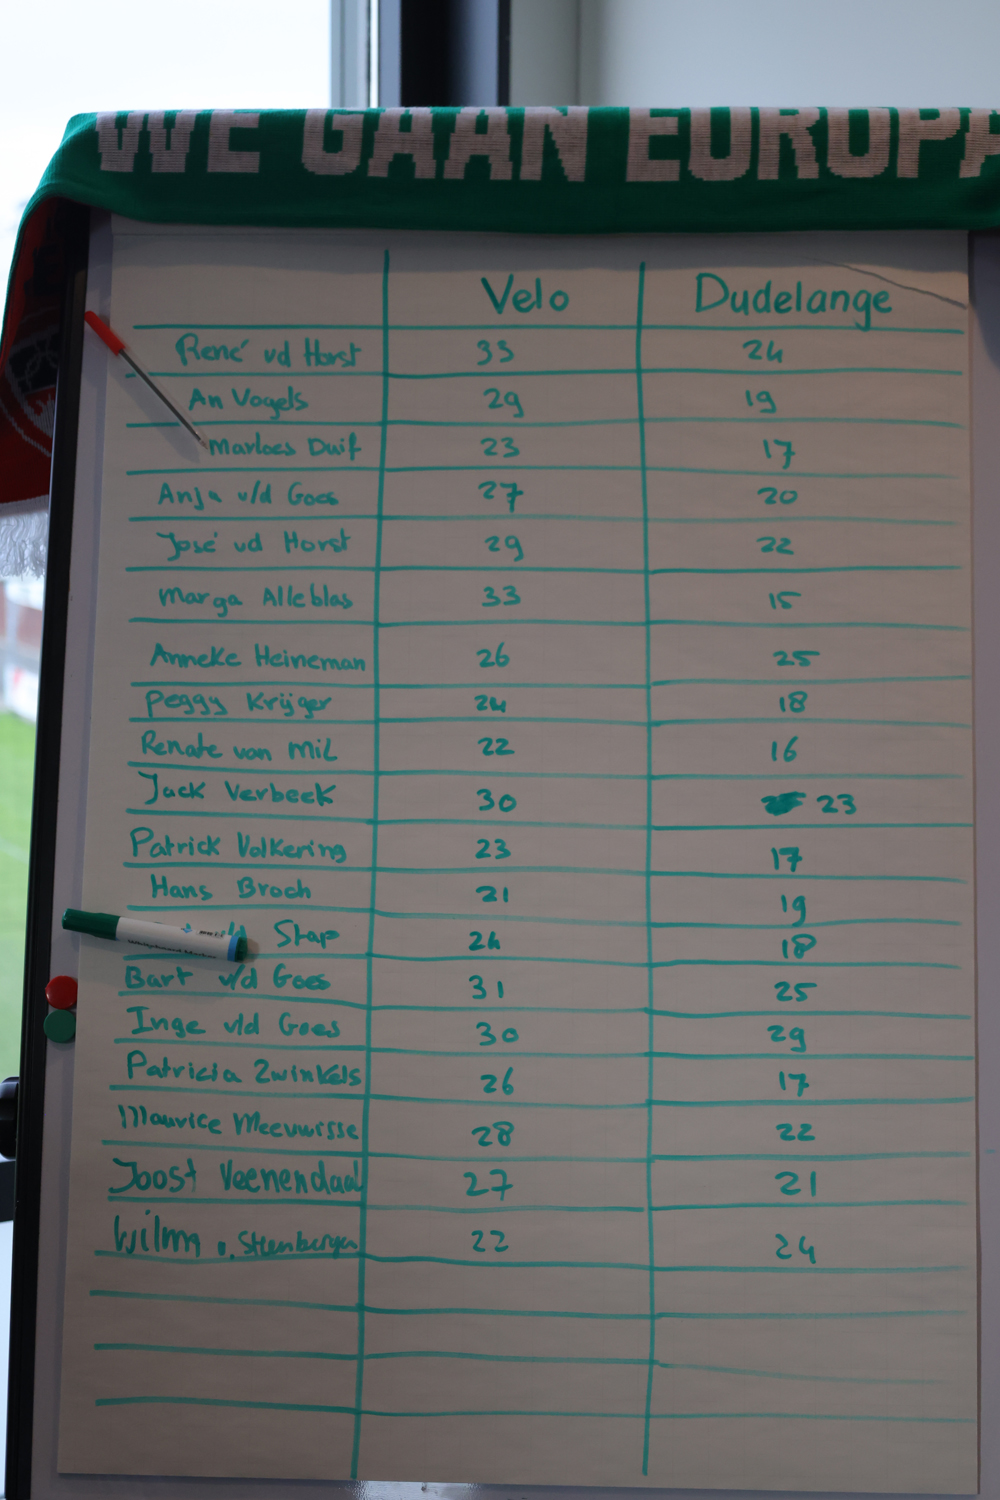 WE GAAN EUROPA
Velo Dudelange
René vd Horst 33 24
An Vogels 29 19
Marloes Duif 23 17
Anja v/d Goes 27 20
José vd Horst 29 22
Marga Alleblas 33 15
Anneke Heineman 26 25
Peggy Krijger 24 18
Renate van Mil 22 16
Jack Verbeek 30 23
Patrick Volkering 23 17
Hans Broch 21 19
Stap 24 18
Bart v/d Goes 31 25
Inge v/d Goes 30 29
Patricia Zwinkels 26 17
Maurice Meeuwisse 28 22
Joost Veenendaal 27 21
Wilma v. Steenbergen 22 24